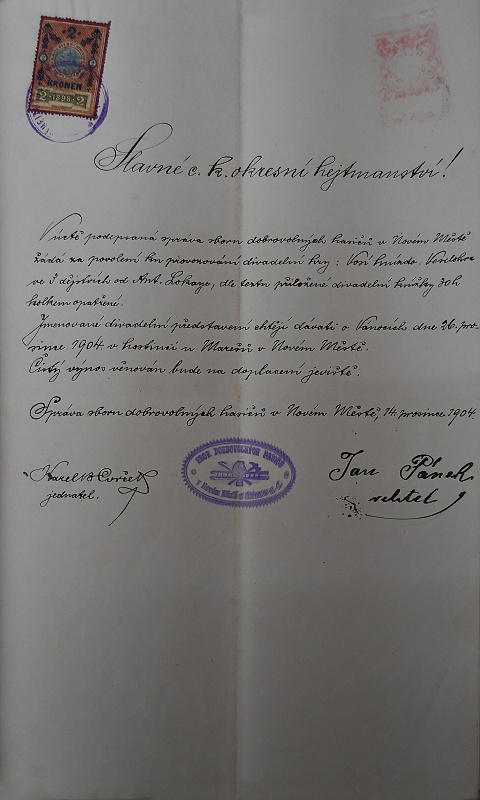 2
KRONEN
2 1898 2
Slavné c. k. okresní hejtmanství!
V úctě podepsaná správa sboru dobrovolných hasičů v Novém Městě
žádá za povolení ku provozování divadelní hry: Vosí hnízdo. Veselohra
ve 3 dějstvích od Ant. Lokaye, dle textu přiložené divadelní knížky 30 h
kolkem opatřené.
Jmenované divadelní představení chtějí dávati o Vánocích dne 26. pro-
since 1904 v hostinci u Marešů v Novém Městě.
Čistý výnos věnován bude na doplacení jeviště.
Správa sboru dobrovolných hasičů v Novém Městě, 14. prosince 1904.
SBOR DOBROVOLNÝCH HASIČŮ
v Novém Městě
Karel
jednatel.
Jan Pánek
velitel